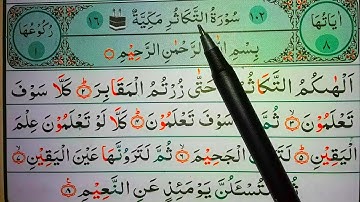 اٰيَاتُهَا ٨
١٠٢ سُوْرَةُ التَّكَاثُرِ مَكِّيَّةٌ ١٦
رُكُوْعُهَا ١
بِسْمِ الرَّحْمٰنِ الرَّحِيْمِ
اَلْهٰىكُمُ التَّكَاثُرُ حَتّٰى زُرْتُمُ الْمَقَابِرَ ٢ كَلَّا سَوْفَ
تَعْلَمُوْنَ ٣ ثُمَّ سَوْفَ تَعْلَمُوْنَ ٤ كَلَّا لَوْ تَعْلَمُوْنَ عِلْمَ
الْيَقِيْنِ ٥ لَتَرَوُنَّ الْجَحِيْمَ ٦ ثُمَّ لَتَرَوُنَّهَا عَيْنَ الْيَقِيْنِ ٧
ثُمَّ لَتُسْـَٔلُنَّ يَوْمَئِذٍ عَنِ النَّعِيْمِ ٨